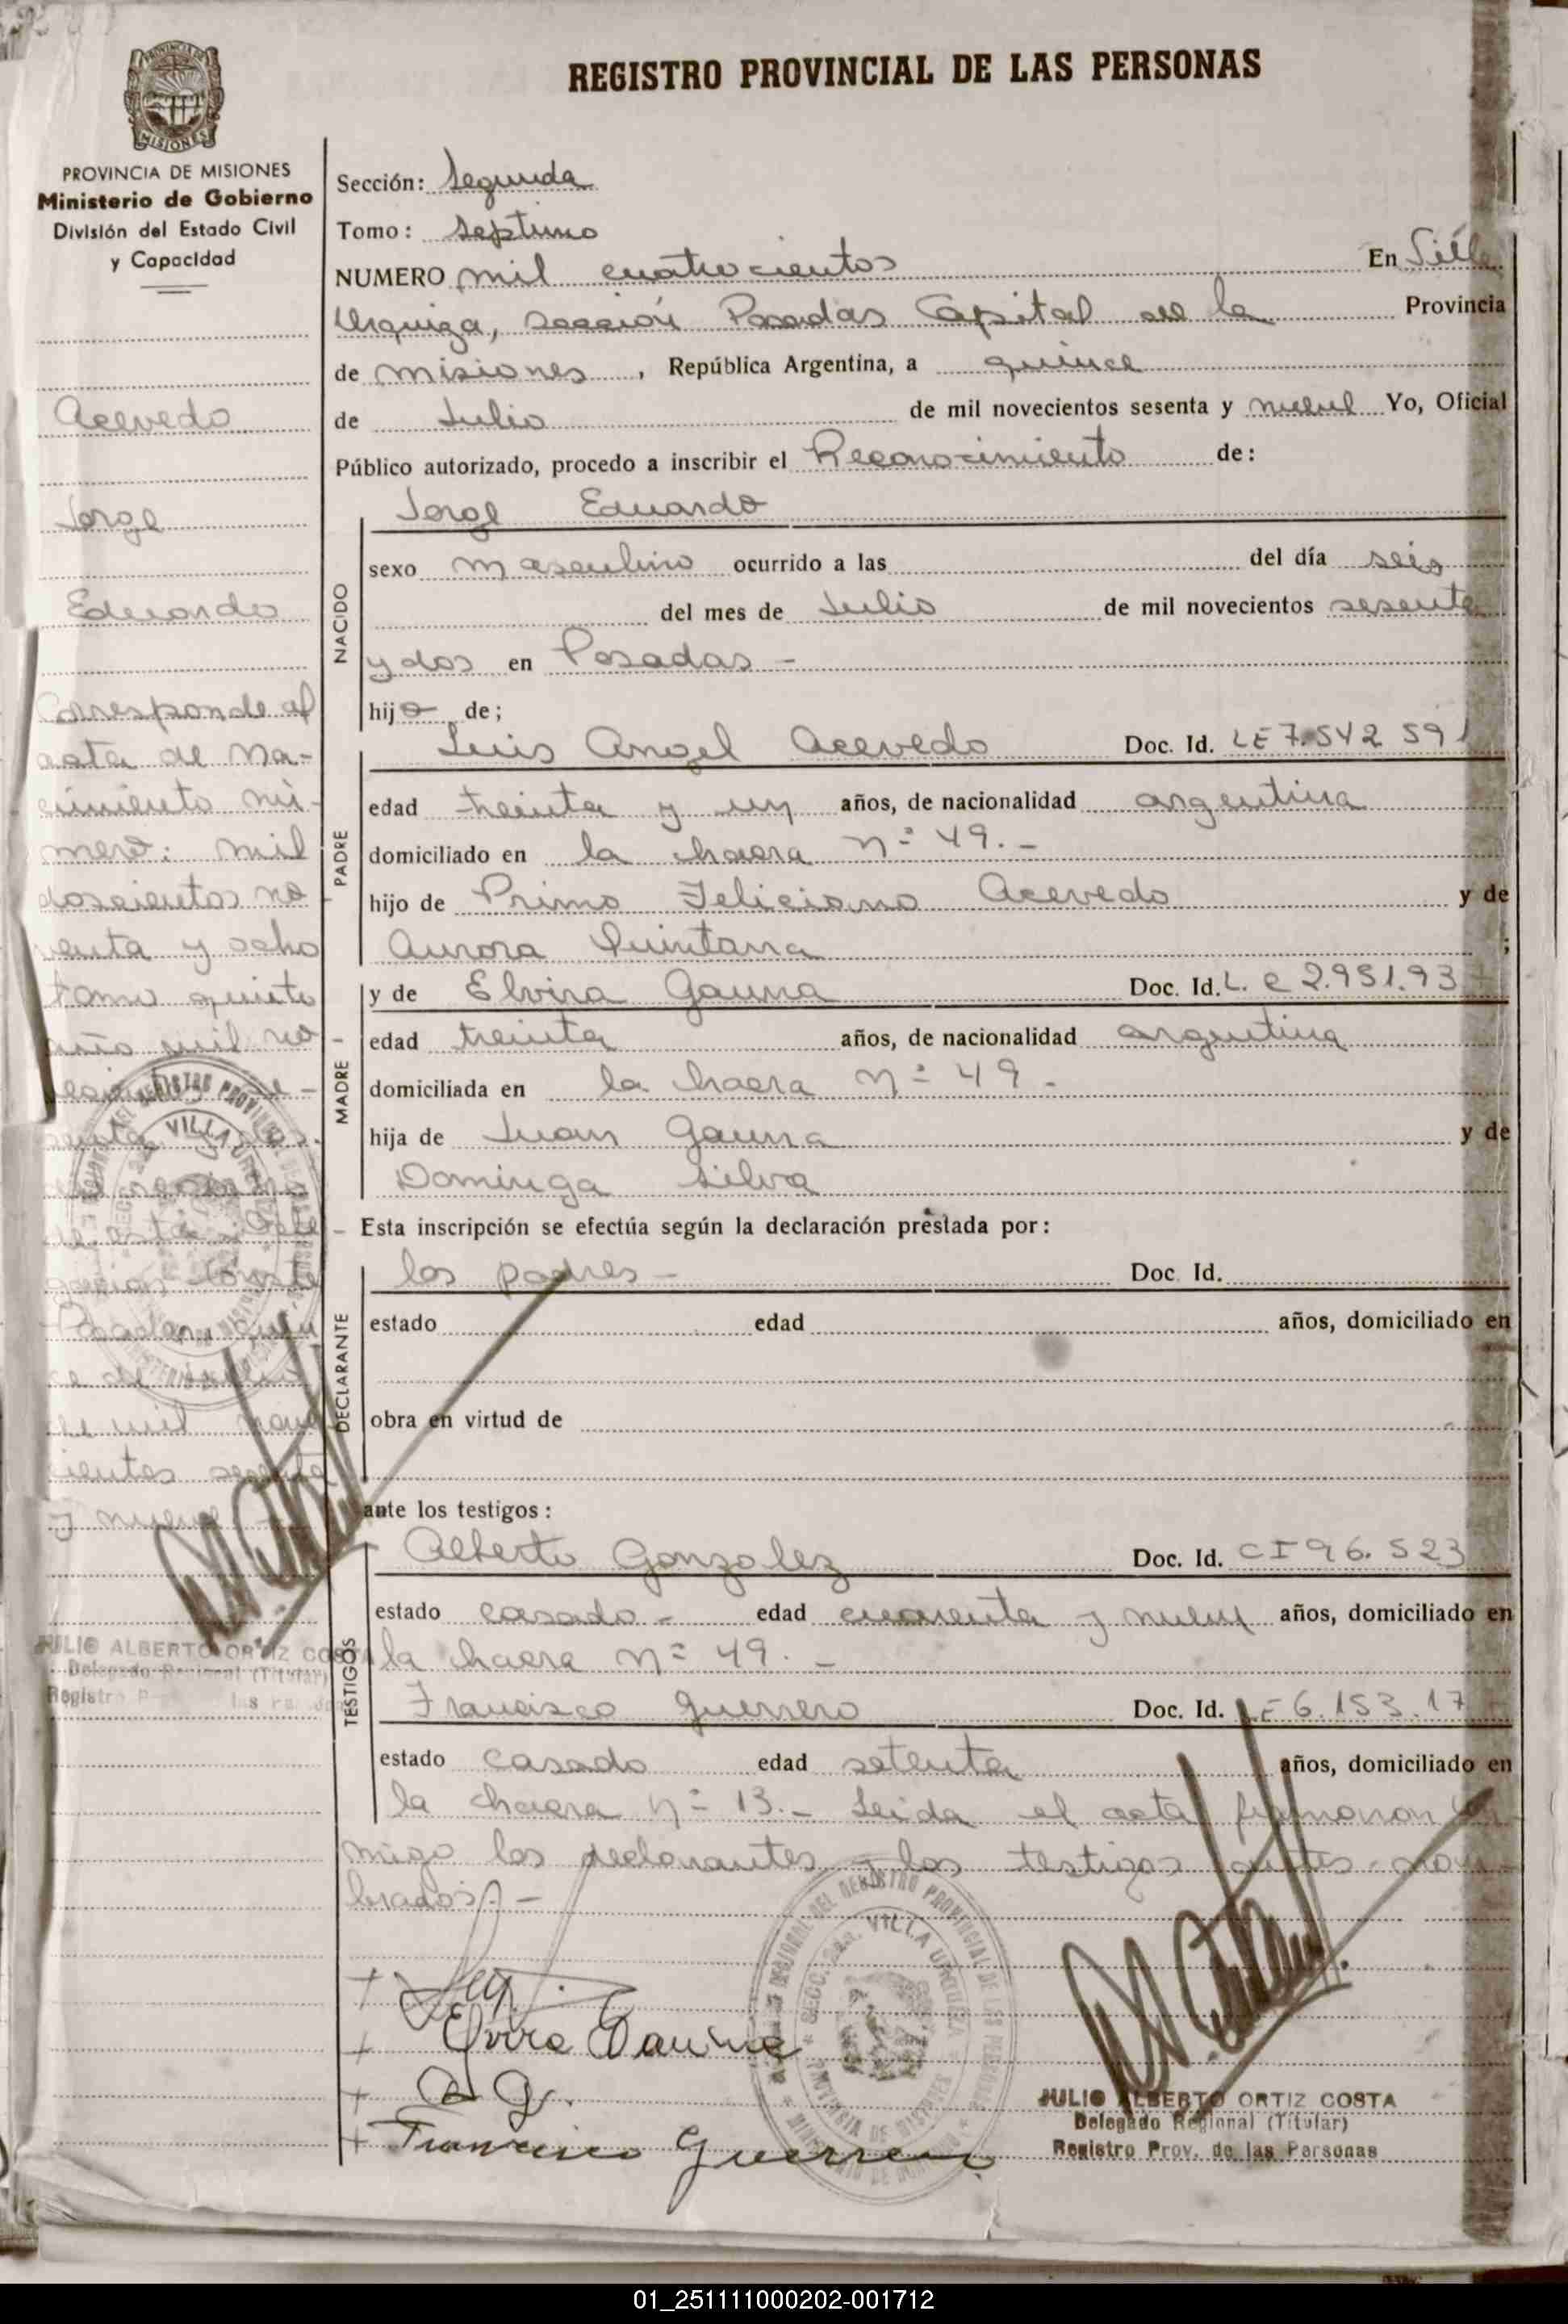 REGISTRO PROVINCIAL DE LAS PERSONAS
MISIONES
PROVINCIA DE MISIONES
Ministerio de Gobierno
División del Estado Civil
y Capacidad
Acevedo
Jorge
Eduardo
Corresponde al
acta de Na-
cimiento nú-
mero: mil
doscientos no
venta y ocho
tomo quinto
año mil no
y nueve
JULIO ALBERTO ORTIZ COSTA
Delegado Regional (Titular)
Sección: Segunda
Tomo: septimo
NUMERO mil cuatrocientos En Villa
Urquiza, sección Posadas Capital de la Provincia
de misiones, República Argentina, a quince
de Julio de mil novecientos sesenta y nueve Yo, Oficial
Público autorizado, procedo a inscribir el Reconocimiento de:
NACIDO
Jorge Eduardo
sexo masculino ocurrido a las del día seis
del mes de Julio de mil novecientos sesenta
y dos en Posadas -
hijo de;
PADRE
Luis Angel Acevedo Doc. Id. LE 7.542 591
edad treinta y un años, de nacionalidad argentina
domiciliado en la chacra nº 49. -
hijo de Primo Feliciano Acevedo y de
Aurora Quintana ;
MADRE
y de Elvira Gauna Doc. Id. L. C 2.951.93
edad treinta años, de nacionalidad argentina
domiciliada en la chacra nº 49 -
hija de Juan Gauna y de
Dominga Silva
Esta inscripción se efectúa según la declaración prestada por:
DECLARANTE
los padres - Doc. Id.
estado edad años, domiciliado en
obra en virtud de
ante los testigos:
TESTIGOS
Alberto Gonzalez Doc. Id. CI 96.523
estado casado - edad cuarenta y nueve años, domiciliado en
la chacra nº 49. -
Francisco Guerrero Doc. Id. LE 6.153.17
estado casado edad setenta años, domiciliado en
la chacra nº 13. - Leida el acta firmaron con
migo los declarantes y los testigos antes nom
brados. -
Elvira Gauna
A G.
Francisco Guerrero
VILLA URQUIZA
PROVINCIA DE MISIONES
JULIO ALBERTO ORTIZ COSTA
Delegado Regional (Titular)
Registro Prov. de las Personas
01_251111000202-001712